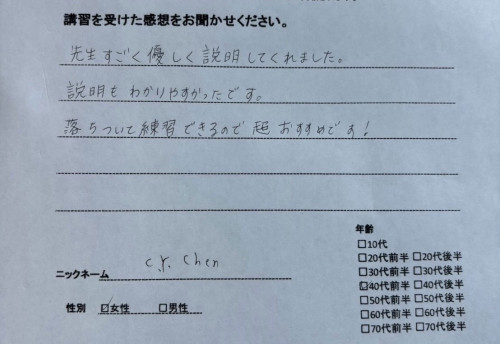 講習を受けた感想をお聞かせください。
先生すごく優しく説明してくれました。
説明もわかりやすかったです。
落ちついて練習できるので超おすすめです！
年齢
□10代
□20代前半 □20代後半
□30代前半 □30代後半
☑40代前半 □40代後半
□50代前半 □50代後半
□60代前半 □60代後半
□70代前半 □70代後半
ニックネーム C.Y. Chen
性別 ☑女性 □男性